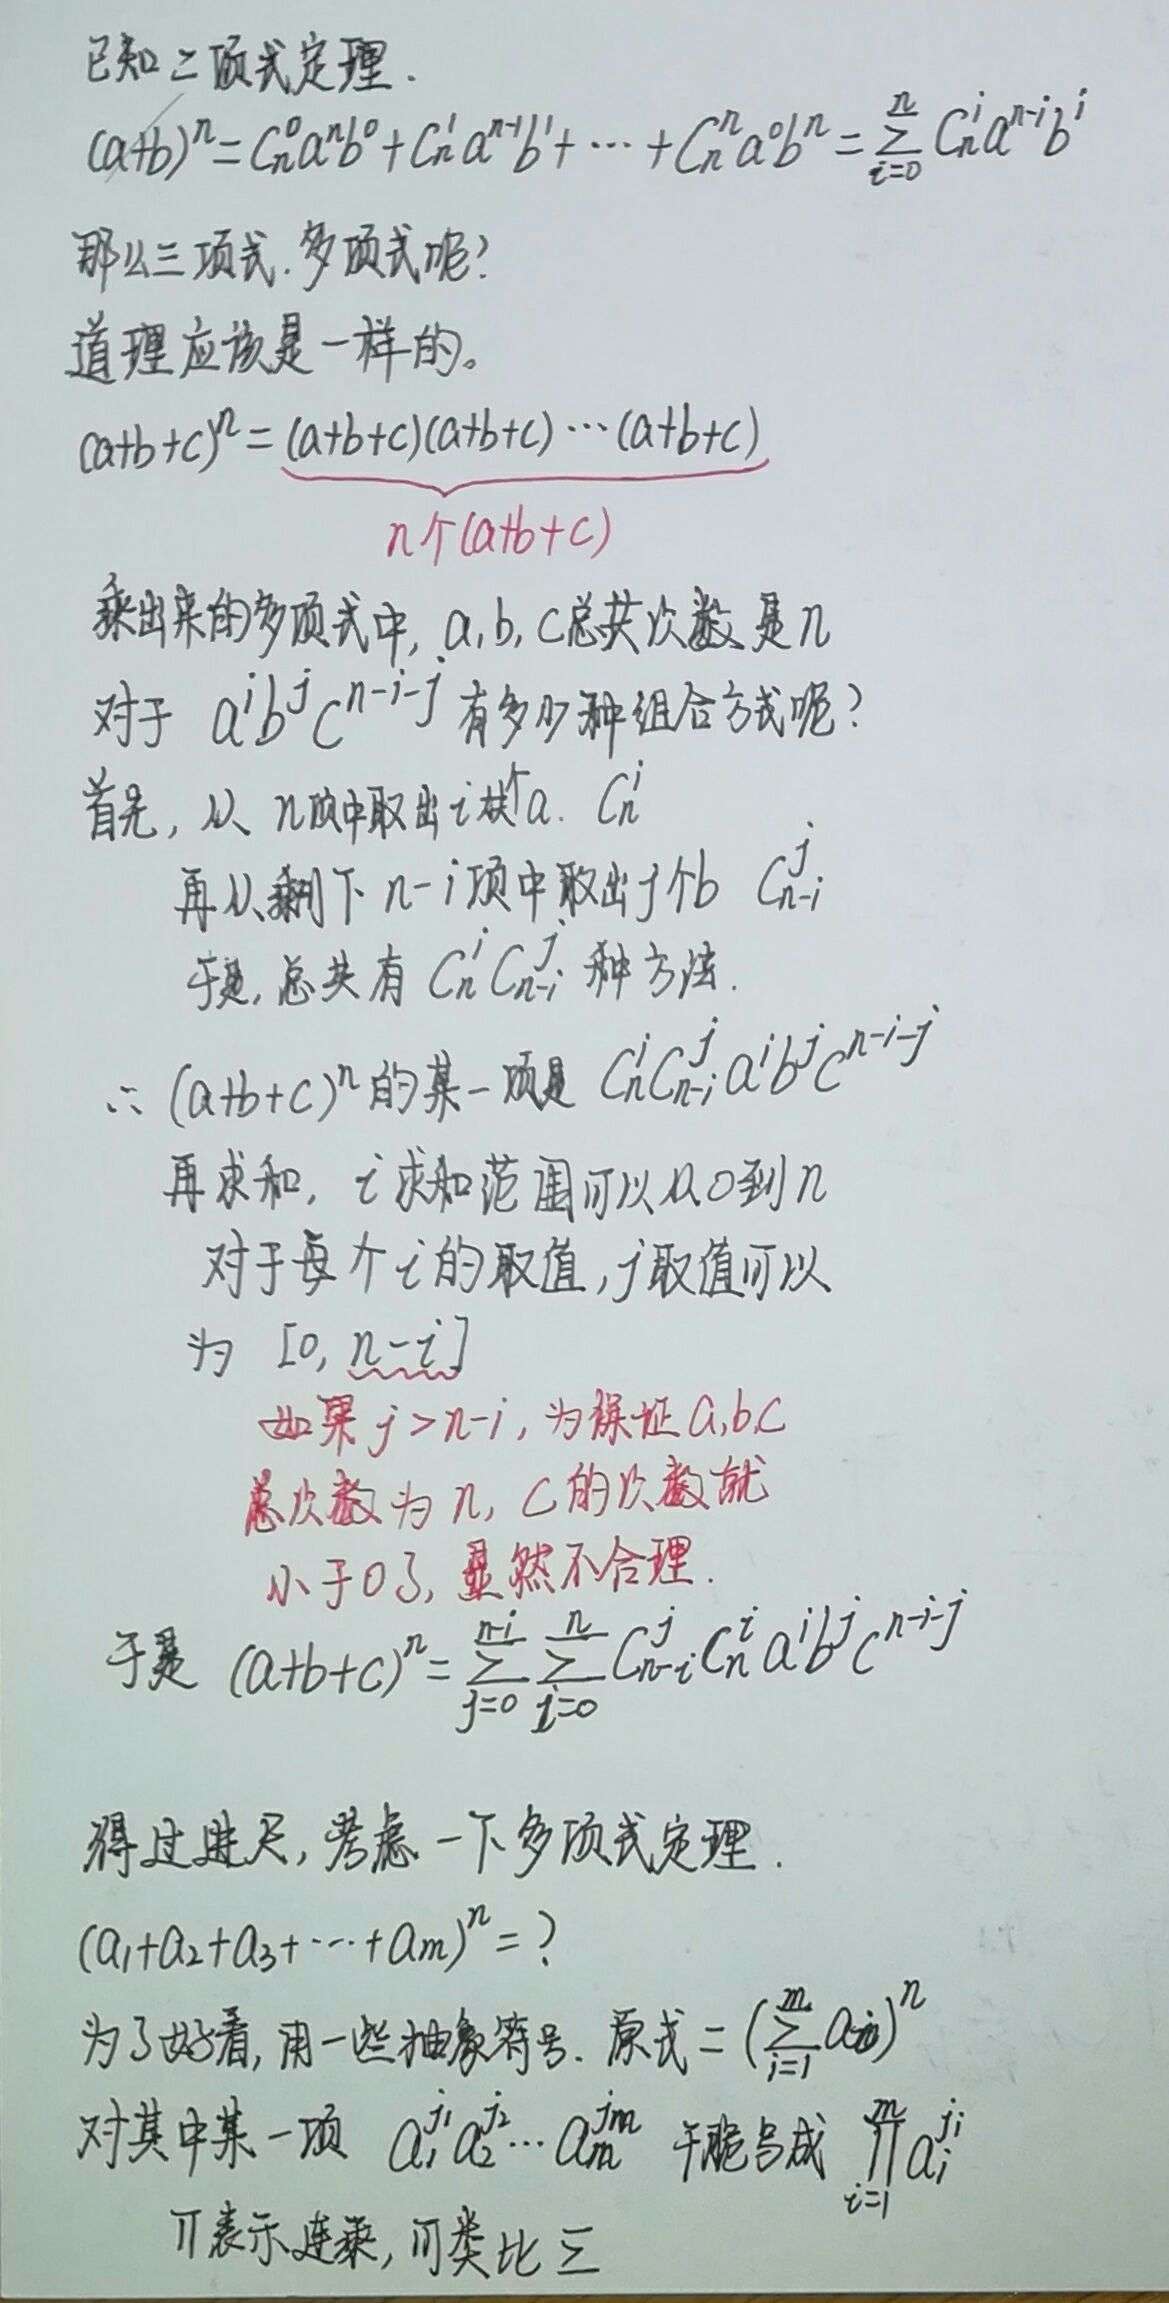 已知二项式定理.
(a+b)ⁿ = Cₙ⁰aⁿb⁰ + Cₙ¹aⁿ⁻¹b¹ + ⋯ + Cₙⁿa⁰bⁿ = ∑_{i=0}^{n} Cₙⁱaⁿ⁻ⁱbⁱ
那么三项式.多项式呢?
道理应该是一样的。
(a+b+c)ⁿ = (a+b+c)(a+b+c)⋯(a+b+c)
n个(a+b+c)
乘出来的多项式中, a,b,c总共次数是n
对于 aⁱbʲcⁿ⁻ⁱ⁻ʲ 有多少种组合方式呢?
首先, 从n项中取出i个a. Cₙⁱ
再从剩下n-i项中取出j个b C_{n-i}^{j}
于是,总共有 Cₙⁱ C_{n-i}^{j} 种方法.
∴ (a+b+c)ⁿ的某一项是 Cₙⁱ C_{n-i}^{j} aⁱbʲcⁿ⁻ⁱ⁻ʲ
再求和, i求和范围可以从0到n
对于每个i的取值,j取值可以
为 [0, n-i]
如果 j>n-i, 为保证a,b,c
总次数为n, c的次数就
小于0了, 显然不合理.
于是 (a+b+c)ⁿ = ∑_{j=0}^{n-i} ∑_{i=0}^{n} C_{n-i}^{j} Cₙⁱ aⁱbʲcⁿ⁻ⁱ⁻ʲ
得过进尺,考虑一下多项式定理.
(a₁+a₂+a₃+⋯+aₘ)ⁿ = ?
为了好看,用一些抽象符号. 原式 = (∑_{i=1}^{m} aᵢ)ⁿ
对其中某一项 a₁^{j₁} a₂^{j₂} ⋯ aₘ^{jₘ} 干脆写成 ∏_{i=1}^{m} aᵢ^{jᵢ}
∏表示连乘, 可类比∑